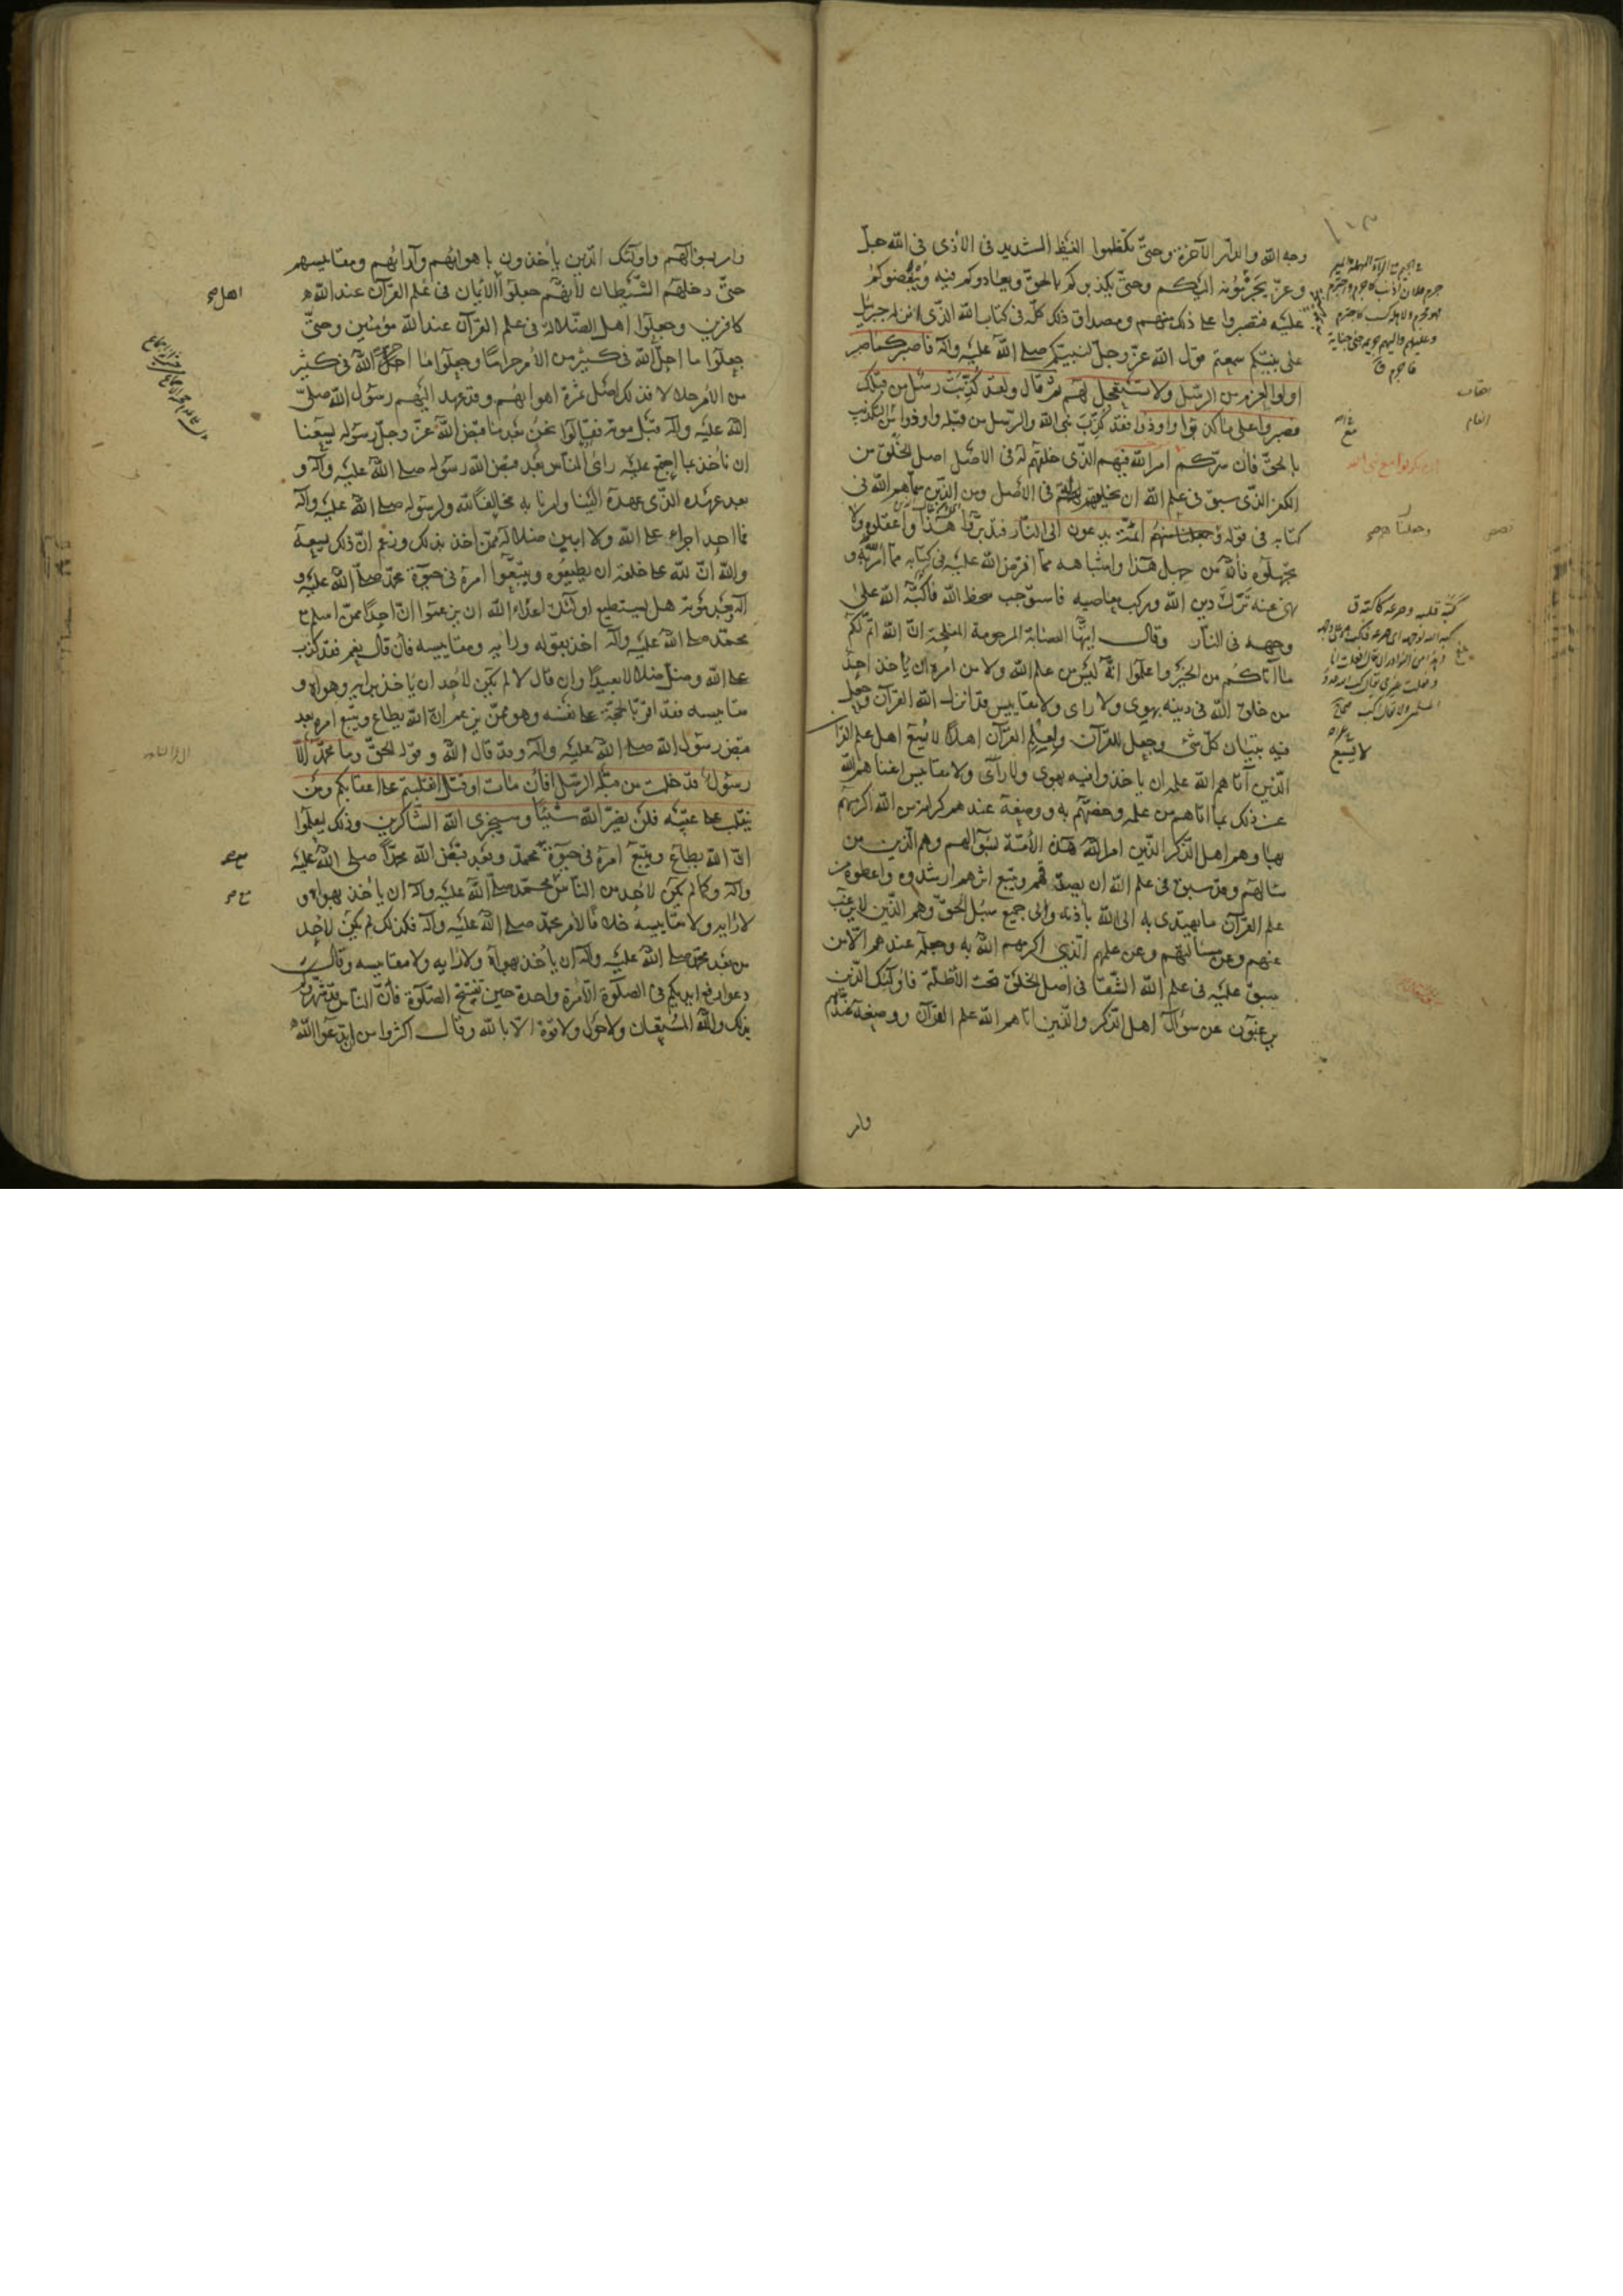 وجه الله والدار الآخرة وحتى تكظموا الغيظ الشديد فى الأذى فى الله جل
وعز يجترمونه اليكم وحتى يكذبوكم بالحق ويعادوكم فيه ويبغضوكم
عليه فتصبروا على ذلك منهم ومصداق ذلك كله فى كتاب الله الذى انزله جبرئيل
على نبيكم سمعتم قول الله عز وجل لنبيكم صلى الله عليه وآله فاصبر كما صبر
اولوا العزم من الرسل ولا تستعجل لهم ثم قال ولقد كذبت رسل من قبلك
فصبروا على ما كذبوا واوذوا فقد كذب نبى الله والرسل من قبله واوذوا مع التكذيب
بالحق فان سركم امر الله فيهم الذى خلقهم له فى الأصل اصل الخلق من
الكفر الذى سبق فى علم الله ان يخلقهم له فى الأصل ومن الذين سماهم الله فى
كتابه فى قوله وجعلنا منهم ائمة يدعون الى النار فتدبروا هذا واعقلوه ولا
تجهلوه فانه من جهل هذا واشباهه مما افترض الله عليه فى كتابه مما امر به و
نهى عنه ترك دين الله وركب معاصيه فاستوجب سخط الله فاكبه الله على
وجهه فى النار وقال ايتها العصابة المرحومة المفلحة ان الله اتم لكم
ما آتاكم من الخير واعلموا انه ليس من علم الله ولا من امره ان يأخذ احد
من خلق الله فى دينه بهوى ولا راى ولا مقاييس قد انزل الله القرآن وجعل
فيه تبيان كل شئ وجعل للقرآن ولعلم القرآن اهلا لا يسع اهل علم القرآن
الذين آتاهم الله علمه ان ياخذوا فيه بهوى ولا رأى ولا مقاييس اغناهم الله
عن ذلك بما اتاهم من علمه وخصهم به ووضعه عندهم كرامة من الله اكرمهم
بها وهم اهل الذكر الذين امر الله هذه الأمة بسؤالهم وهم الذين من
سالهم وقد سبق فى علم الله ان يصدقهم ويتبع اثرهم ارشدوه واعطوه من
علم القرآن ما يهتدى به الى الله بأذنه والى جميع سبل الحق وهم الذين لا يرغب
عنهم وعن مسألتهم وعن علمهم الذى اكرمهم الله به وجعله عندهم الا من
سبق عليه فى علم الله الشقا فى اصل الخلق تحت الأظلة فاولئك الذين
يرغبون عن سؤال اهل الذكر والذين اتاهم الله علم القرآن ووضعه عندهم
وامر
لا يسع
وامر بسؤالهم واولئك الذين يأخذون باهوائهم وآرائهم ومقاييسهم
حتى دخلهم الشيطان لأنهم جعلوا الايمان فى علم القرآن عند الله
كافرين وجعلوا اهل الضلالة فى علم القرآن عند الله مؤمنين وحتى
جعلوا ما احل الله فى كثير من الأمر حراما وجعلوا ما حرم الله فى كثير
من الأمر حلالا فذلك اصل ثمرة اهوائهم وقد عهد اليهم رسول الله صلى
الله عليه وآله قبل موته فقالوا نحن بعد ما قبض الله عز وجل رسوله يسعنا
ان نأخذ بما اجتمع عليه راى الناس بعد قبض الله رسوله صلى الله عليه وآله و
بعد عهده الذى عهده الينا وامرنا به مخالفا لله ولرسوله صلى الله عليه وآله
فما احد اجرء على الله ولا ابين ضلالة ممن اخذ بذلك وزعم ان ذلك يسعه
والله ان لله على خلقه ان يطيعوه ويتبعوا امره فى حيوة محمد صلى الله عليه و
آله وبعد موته هل يستطيع اولئك اعداء الله ان يزعموا ان احدا ممن اسلم مع
محمد صلى الله عليه وآله اخذ بقوله ورايه ومقاييسه فان قال نعم فقد كذب
على الله وضل ضلالا بعيدا وان قال لا لم يكن لأحد ان ياخذ برايه وهواه و
مقاييسه فقد اقر بالحجة على نفسه وهو ممن يزعم ان الله يطاع ويتبع امره بعد
قبض رسول الله صلى الله عليه وآله وقد قال الله وقوله الحق وما محمد الا
رسول قد خلت من قبله الرسل افان مات او قتل انقلبتم على اعقابكم ومن
ينقلب على عقبيه فلن يضر الله شيئا وسيجزى الله الشاكرين وذلك ليعلموا
ان الله يطاع ويتبع امره فى حيوة محمد وبعد قبض الله محمدا صلى الله عليه
وآله وكما لم يكن لاحد من الناس مع محمد صلى الله عليه وآله ان يأخذ بهواه و
لا رايه ولا مقاييسه خلافا لأمر محمد صلى الله عليه وآله فكذلك لم يكن لأحد
من بعد محمد صلى الله عليه وآله ان يأخذ بهواه ولا رايه ولا مقاييسه وقال
دعوا رفع ايديكم فى الصلوة الا مرة واحدة حين تفتتح الصلوة فان الناس قد شهروكم
بذلك والله المستعان ولا حول ولا قوة الا بالله وقال اكثروا من ان تدعوا الله